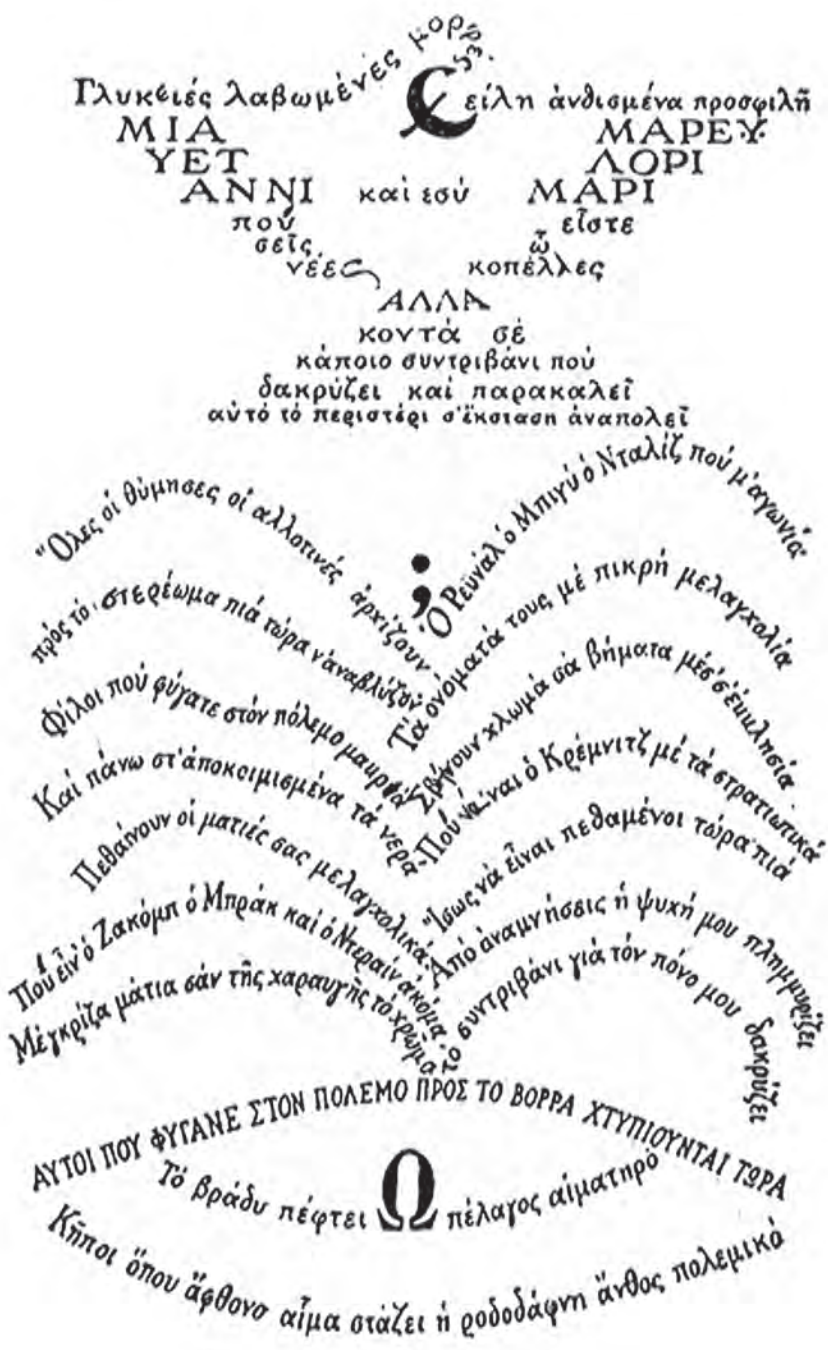 Γλυκειές λαβωμένές μορφές.
Χείλη ἀνθισμένα προσφιλῆ
ΜΙΑ ΜΑΡΕΥ·
ΥΕΤ ΛΟΡΙ
ΑΝΝΙ καί εσύ ΜΑΡΙ
πού εἶστε
σεῖς ὦ
νέες κοπέλλες
ΑΛΛΑ
κοντά σέ
κάποιο συντριβάνι πού
δακρύζει καί παρακαλεῖ
αὐτό τό περιστέρι σ'ἔκσταση ἀναπολεῖ
Ὅλες οἱ θύμησες οἱ αλλοτινές ἀρχίζουν
πρός τό στερέωμα πιά τώρα ν'ἀναβλύζουν
Φίλοι πού φύγατε στόν πόλεμο μακρυά
Καί πάνω στ'ἀποκοιμισμένα τά νερα
Πεθαίνουν οἱ ματιές σας μελαγχολικά
Πού εἶν ὁ Ζακόμπ ὁ Μπράκ καί ὁ Ντεραίν ἀκόμα
Μέ γκρίζα μάτια σάν τῆς χαραυγῆς τό χρῶμα
;
Ὁ Ρευνάλ ὁ Μπιγύ ὁ Νταλίζ πού μ'αγωνία
Τά ονόματά τους μέ πικρή μελαγχολία
Σβήνουν χλωμά σά βήματα μέσ'σ'ἐκκλησία
Πού νά εἶναι ὁ Κρέμνιτζ μέ τά στρατιωτικά
Ἴσως νά εἶναι πεθαμένοι τώρα πιά
Ἀπό ἀναμνήσεις ἡ ψυχή μου πλημμυρίζει
Το συντριβάνι γιά τόν πόνο μου δακρύζει
ΑΥΤΟΙ ΠΟΥ ΦΥΓΑΝΕ ΣΤΟΝ ΠΟΛΕΜΟ ΠΡΟΣ ΤΟ ΒΟΡΡΑ ΧΤΥΠΙΟΥΝΤΑΙ ΤΩΡΑ
Τό βράδυ πέφτει Ω πέλαγος αἱματηρό
Κῆποι ὅπου ἄφθονο αἷμα στάζει ἡ ροδοδάφνη ἄνθος πολεμικό